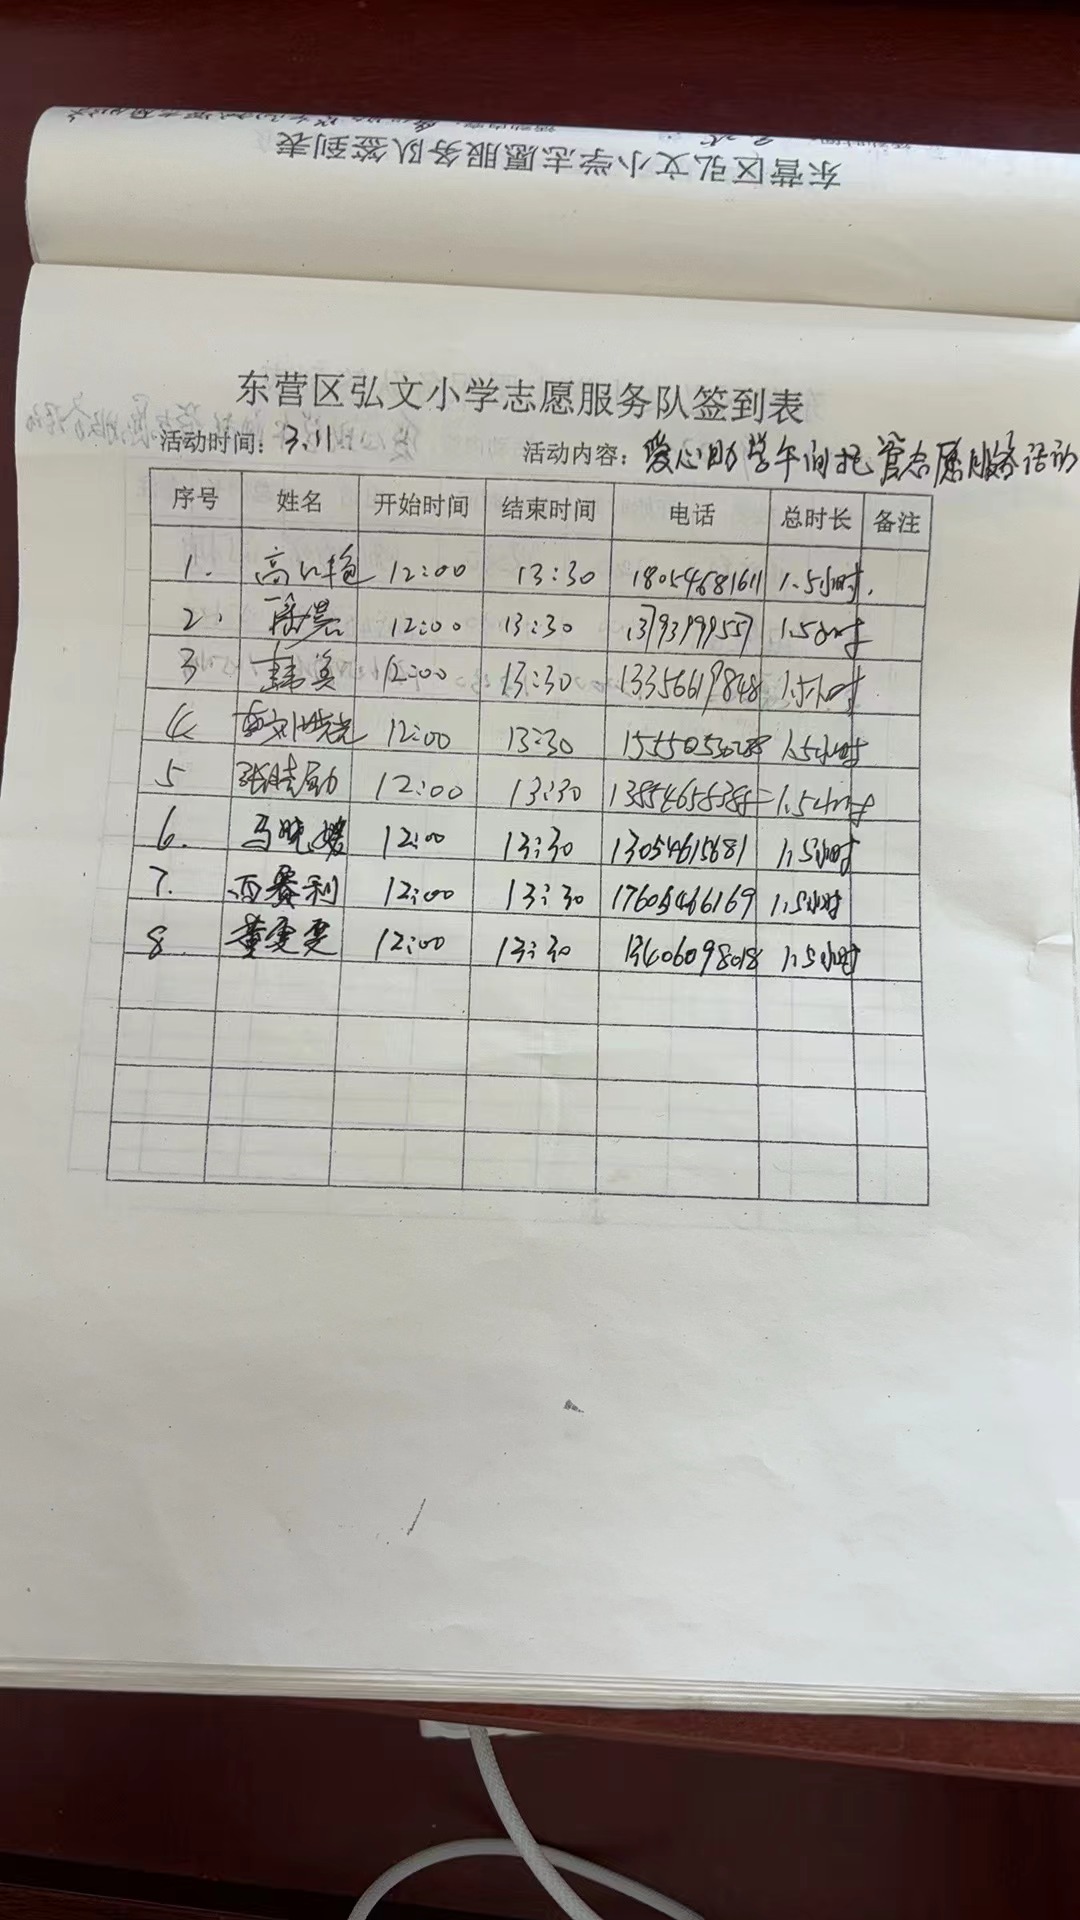 东营区弘文小学志愿服务队签到表
东营区弘文小学志愿服务队签到表
活动时间：3.11 活动内容：爱心助学午间托管志愿服务活动
序号 姓名 开始时间 结束时间 电话 总时长 备注
1. 12:00 13:30 18054681611 1.5小时.
2. 12:00 13:30 13793999557 1.5小时
3 韩美 12:00 13:30 13356619848 1.5小时
4 12:00 13:30 1.5小时
5 12:00 13:30 1.5小时
6. 马晓媛 12:00 13:30 13054615681 1.5小时
7. 西赛利 12:00 13:30 17605466169 1.5小时
8. 董雯雯 12:00 13:30 13406098018 1.5小时